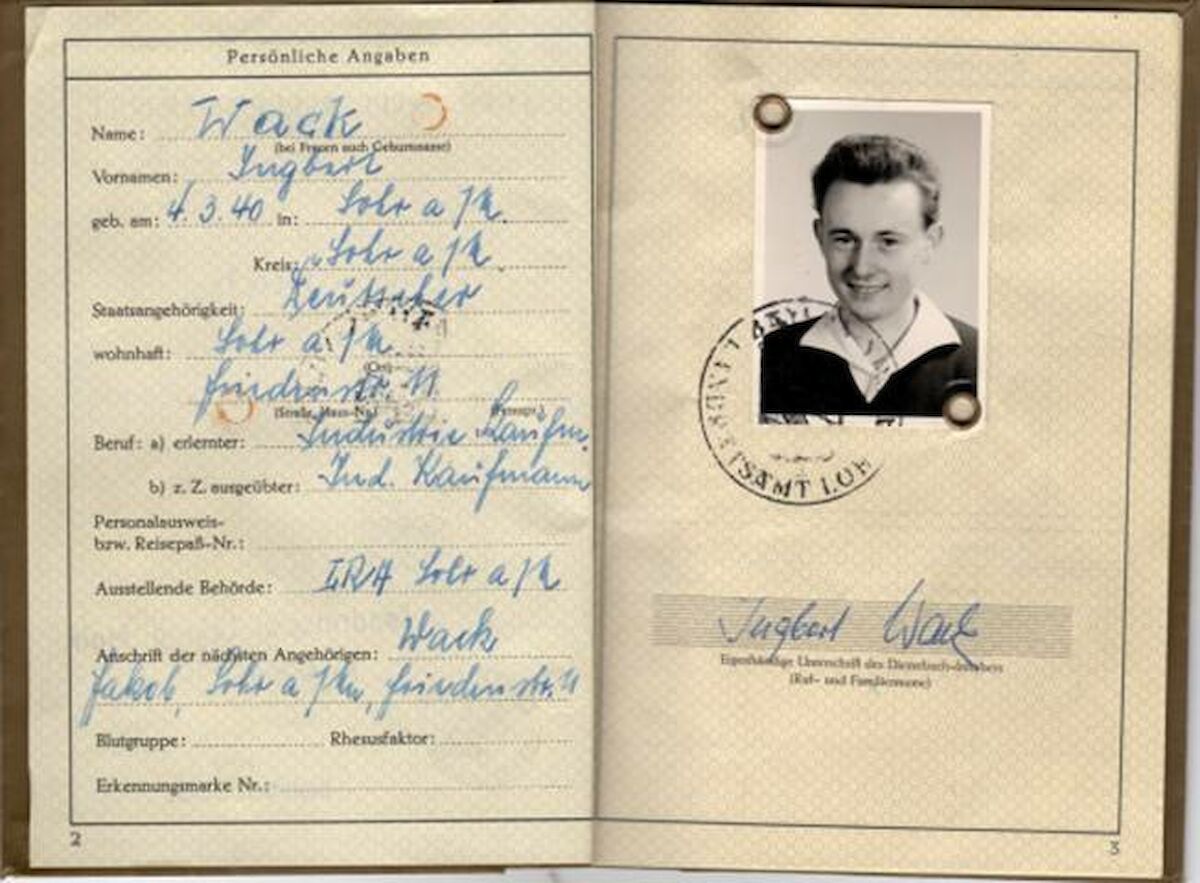 Persönliche Angaben
Name: Wack
(bei Frauen auch Geburtsname)
Vornamen: Ingbert
geb. am: 4.3.40 in: Lohr a/M.
Kreis: Lohr a/M.
Staatsangehörigkeit: Deutscher
wohnhaft: Lohr a/M.
(Ort)
Friedenstr. 11
(Straße, Haus-Nr.) (Fernspr.)
Beruf: a) erlernter: Industrie Kaufm.
b) z. Z. ausgeübter: Ind. Kaufmann
Personalausweis-
bzw. Reisepaß-Nr.:
Ausstellende Behörde: LRA Lohr a/M
Anschrift der nächsten Angehörigen: Wack
Jakob, Lohr a/M, Friedenstr. 11
Blutgruppe: Rhesusfaktor:
Erkennungsmarke Nr.:
2
TSAMT LOH
Ingbert Wack
Eigenhändige Unterschrift des Dienstbuch-Inhabers
(Ruf- und Familienname)
3